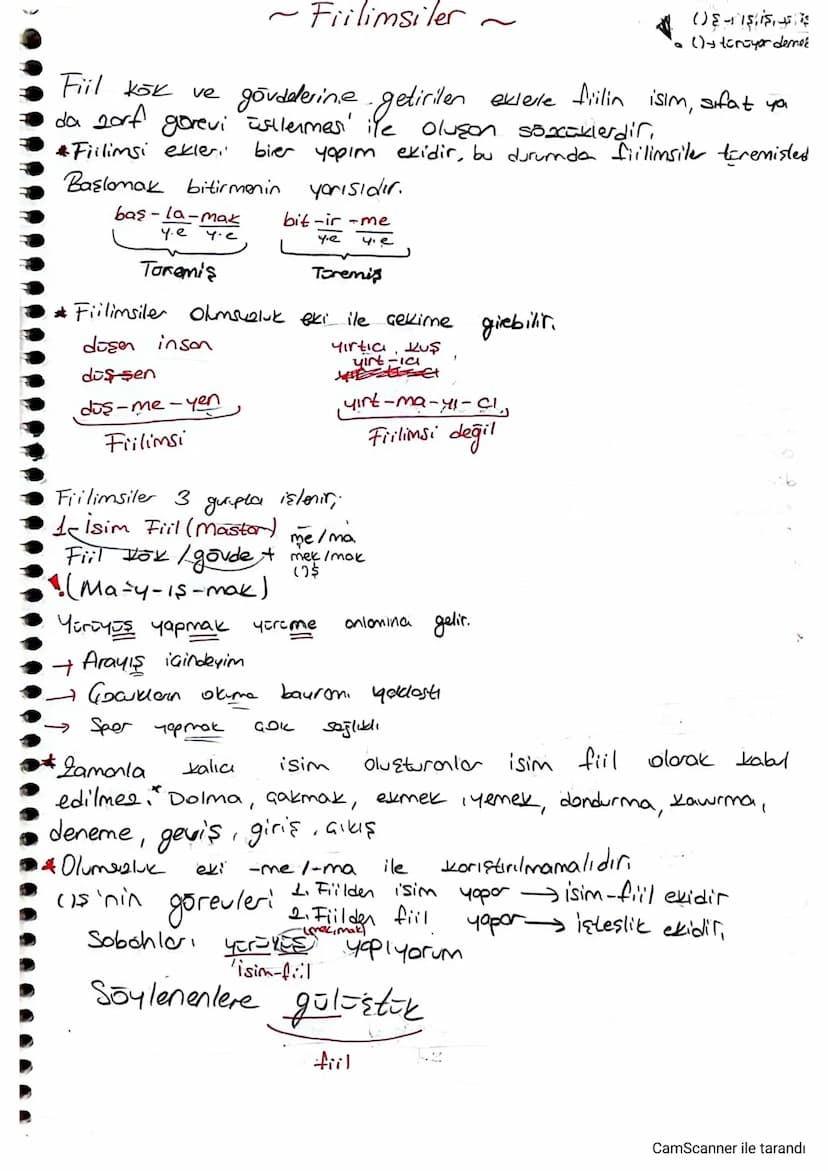 ~ Fiilimsiler ~
()ş → ış, iş, uş, üş
()→ türüyor demek
Fiil kök ve gövdelerine getirilen eklerle fiilin isim, sıfat ya
da zarf görevi üstlenmesi ile oluşan sözcüklerdir.
*Fiilimsi ekleri birer yapım ekidir, bu durumda fiilimsiler türemişted
Başlamak bitirmenin yarısıdır.
baş-la-mak bit-ir-me
y.e y.e y.e y.e
Türemiş Türemiş
* Fiilimsiler olumsuzluk eki ile çekime girebilir.
düşen insan yırtıcı kuş
düş-şen yırt-ıcı
düş-me-yen yırt-ma-yı-cı
Fiilimsi Fiilimsi değil
Fiilimsiler 3 grupta işlenir;
1-İsim Fiil (Mastar) me/ma
Fiil kök/gövde + mek/mak
()ş
!(Ma-y-ış-mak)
Yürüyüş yapmak yürüme anlamına gelir.
→ Arayış içindeyim
→ Çocukların okuma bayramı yaklaştı
→ Spor yapmak çok sağlıklı
*Zamanla kalıcı isim oluşturanlar isim fiil olarak kabul
edilmez.* Dolma, çakmak, ekmek, yemek, dondurma, kavurma,
deneme, geviş, giriş, çıkış
*Olumsuzluk eki -me/-ma ile karıştırılmamalıdır.
()ş'nin görevleri 1. Fiilden isim yapar → isim-fiil ekidir
2. Fiilden fiil yapar → işteşlik ekidir.
(mek,mak)
Sabahları yürüyüş yapıyorum
isim-fiil
Söylenenlere gülüştük
fiil
CamScanner ile tarandı